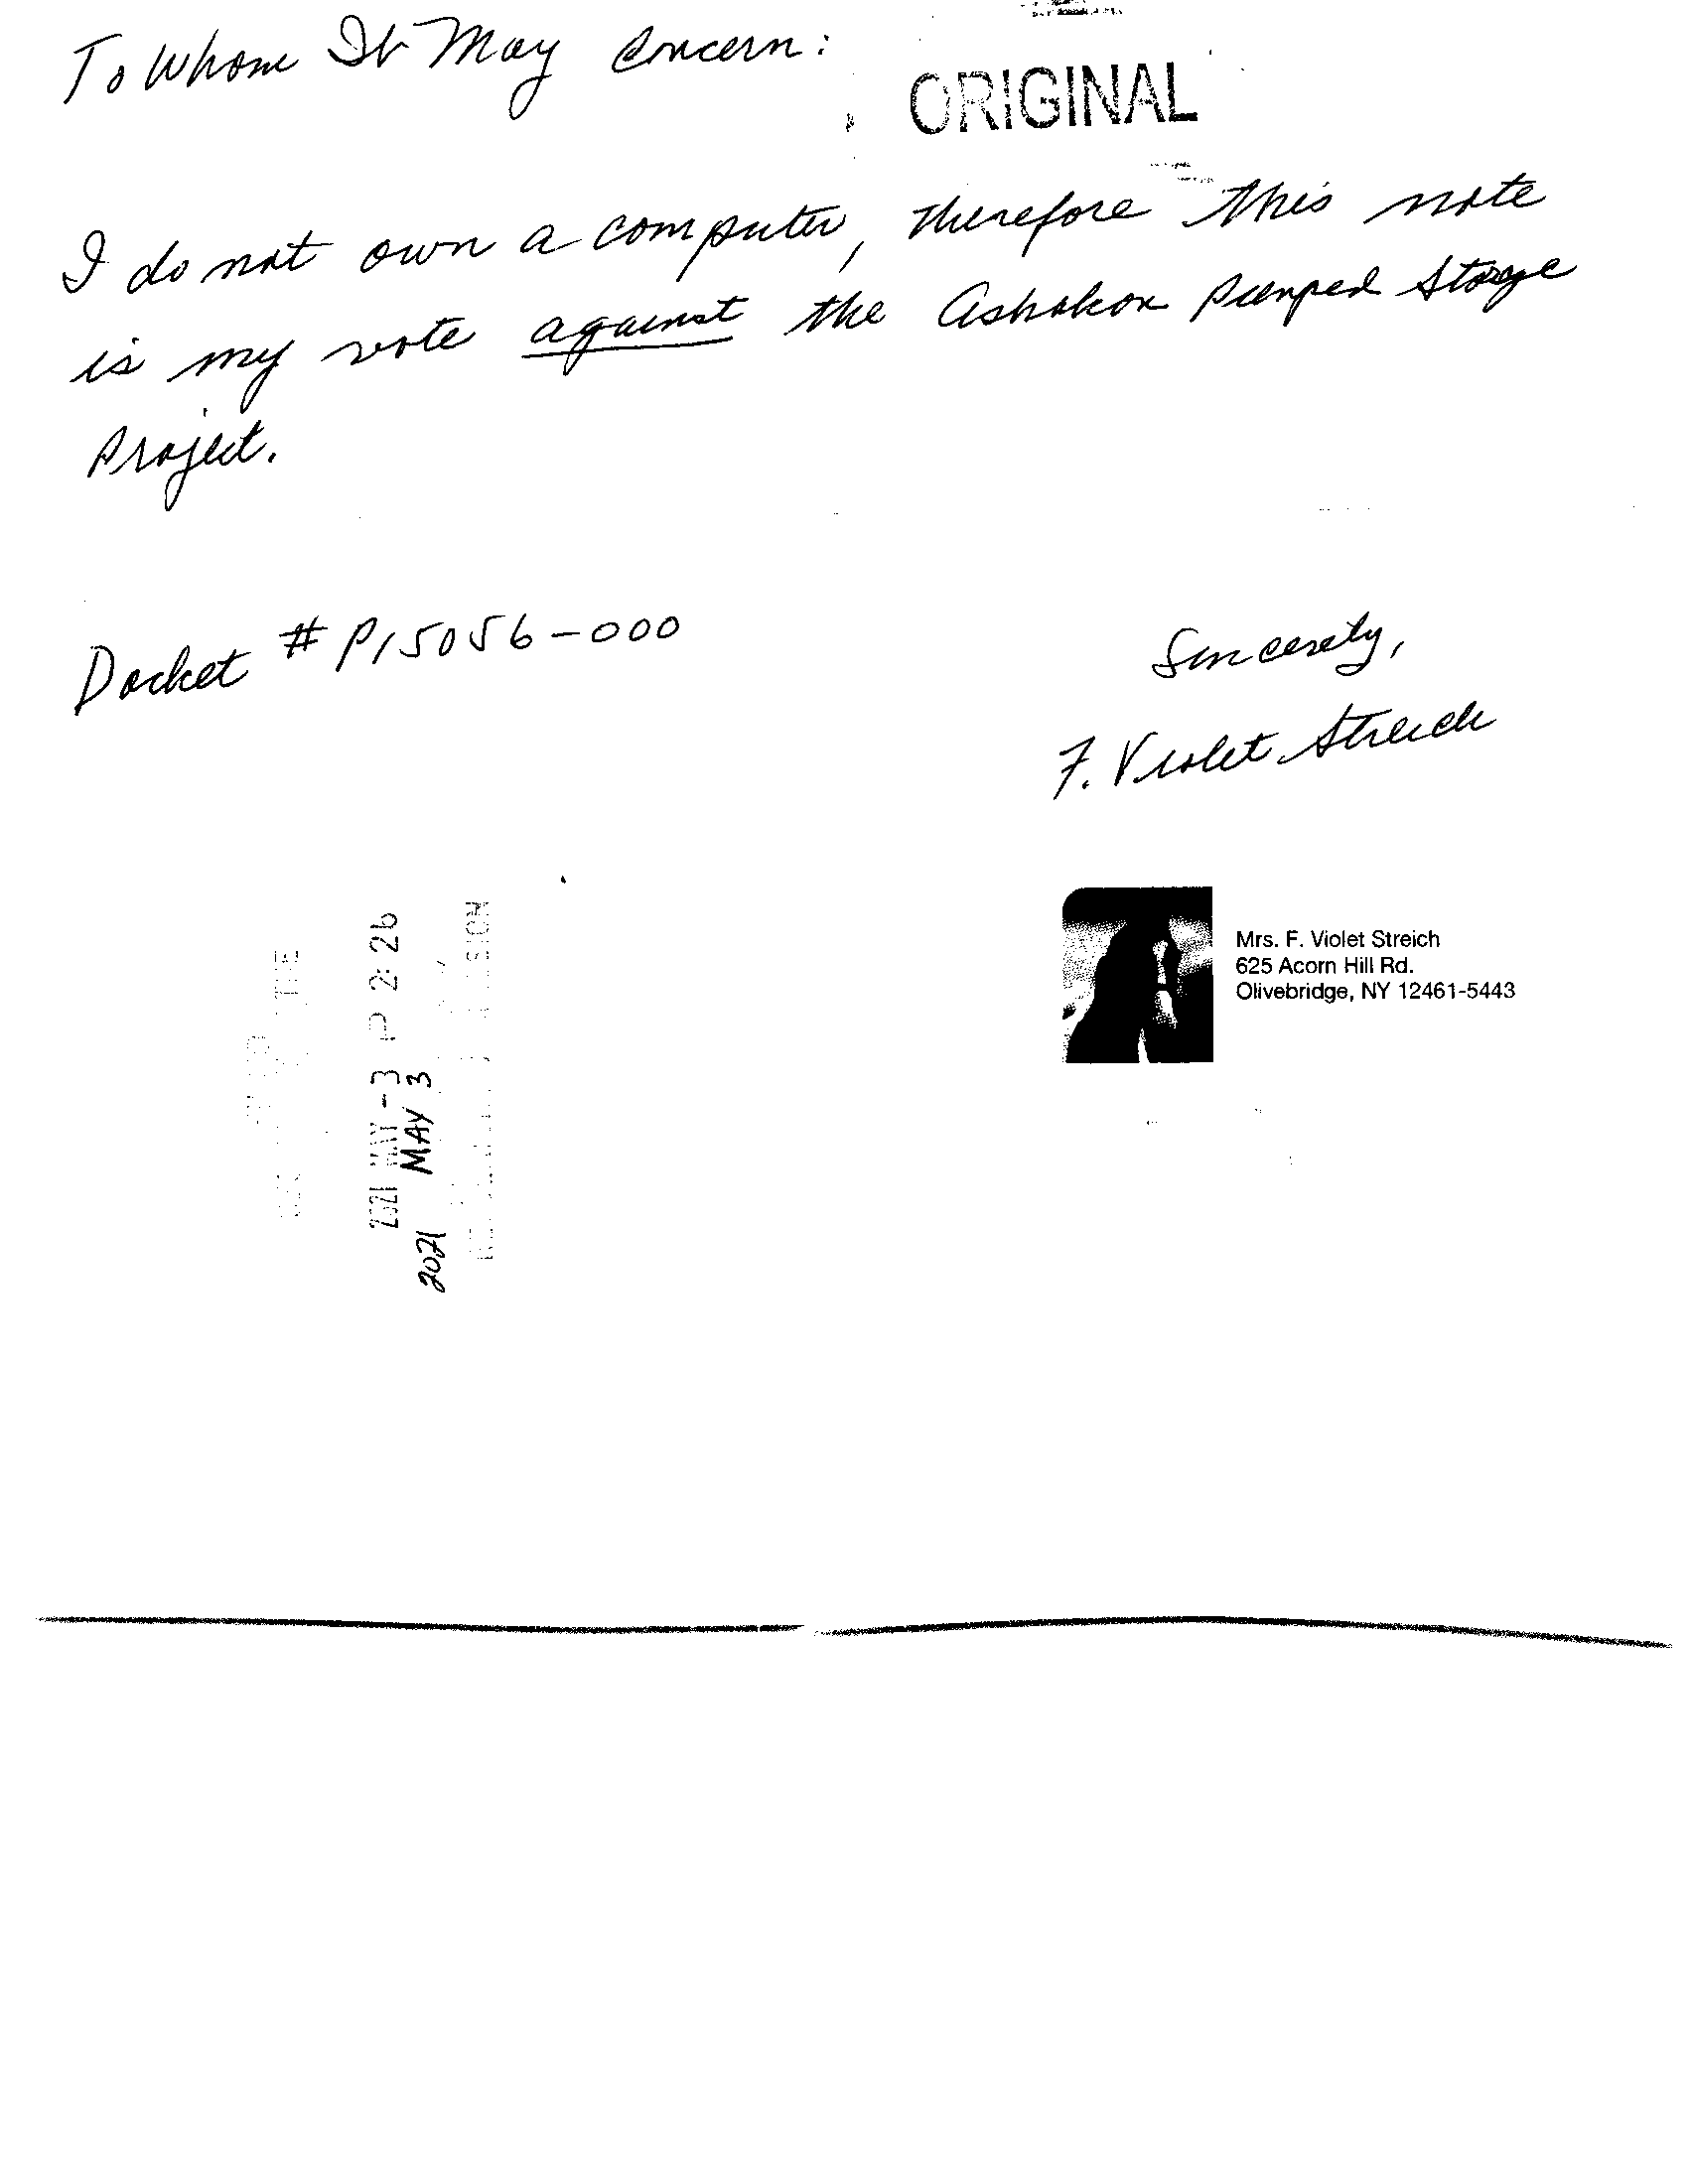 To Whom It May Concern:
ORIGINAL
I do not own a computer, therefore this note
is my vote against the Ashokan Pumped Storage
Project.
Docket # P15056-000
Sincerely,
F. Violet Streich
Mrs. F. Violet Streich
625 Acorn Hill Rd.
Olivebridge, NY 12461-5443
2021 MAY -3 P 2:26
2021 MAY 3